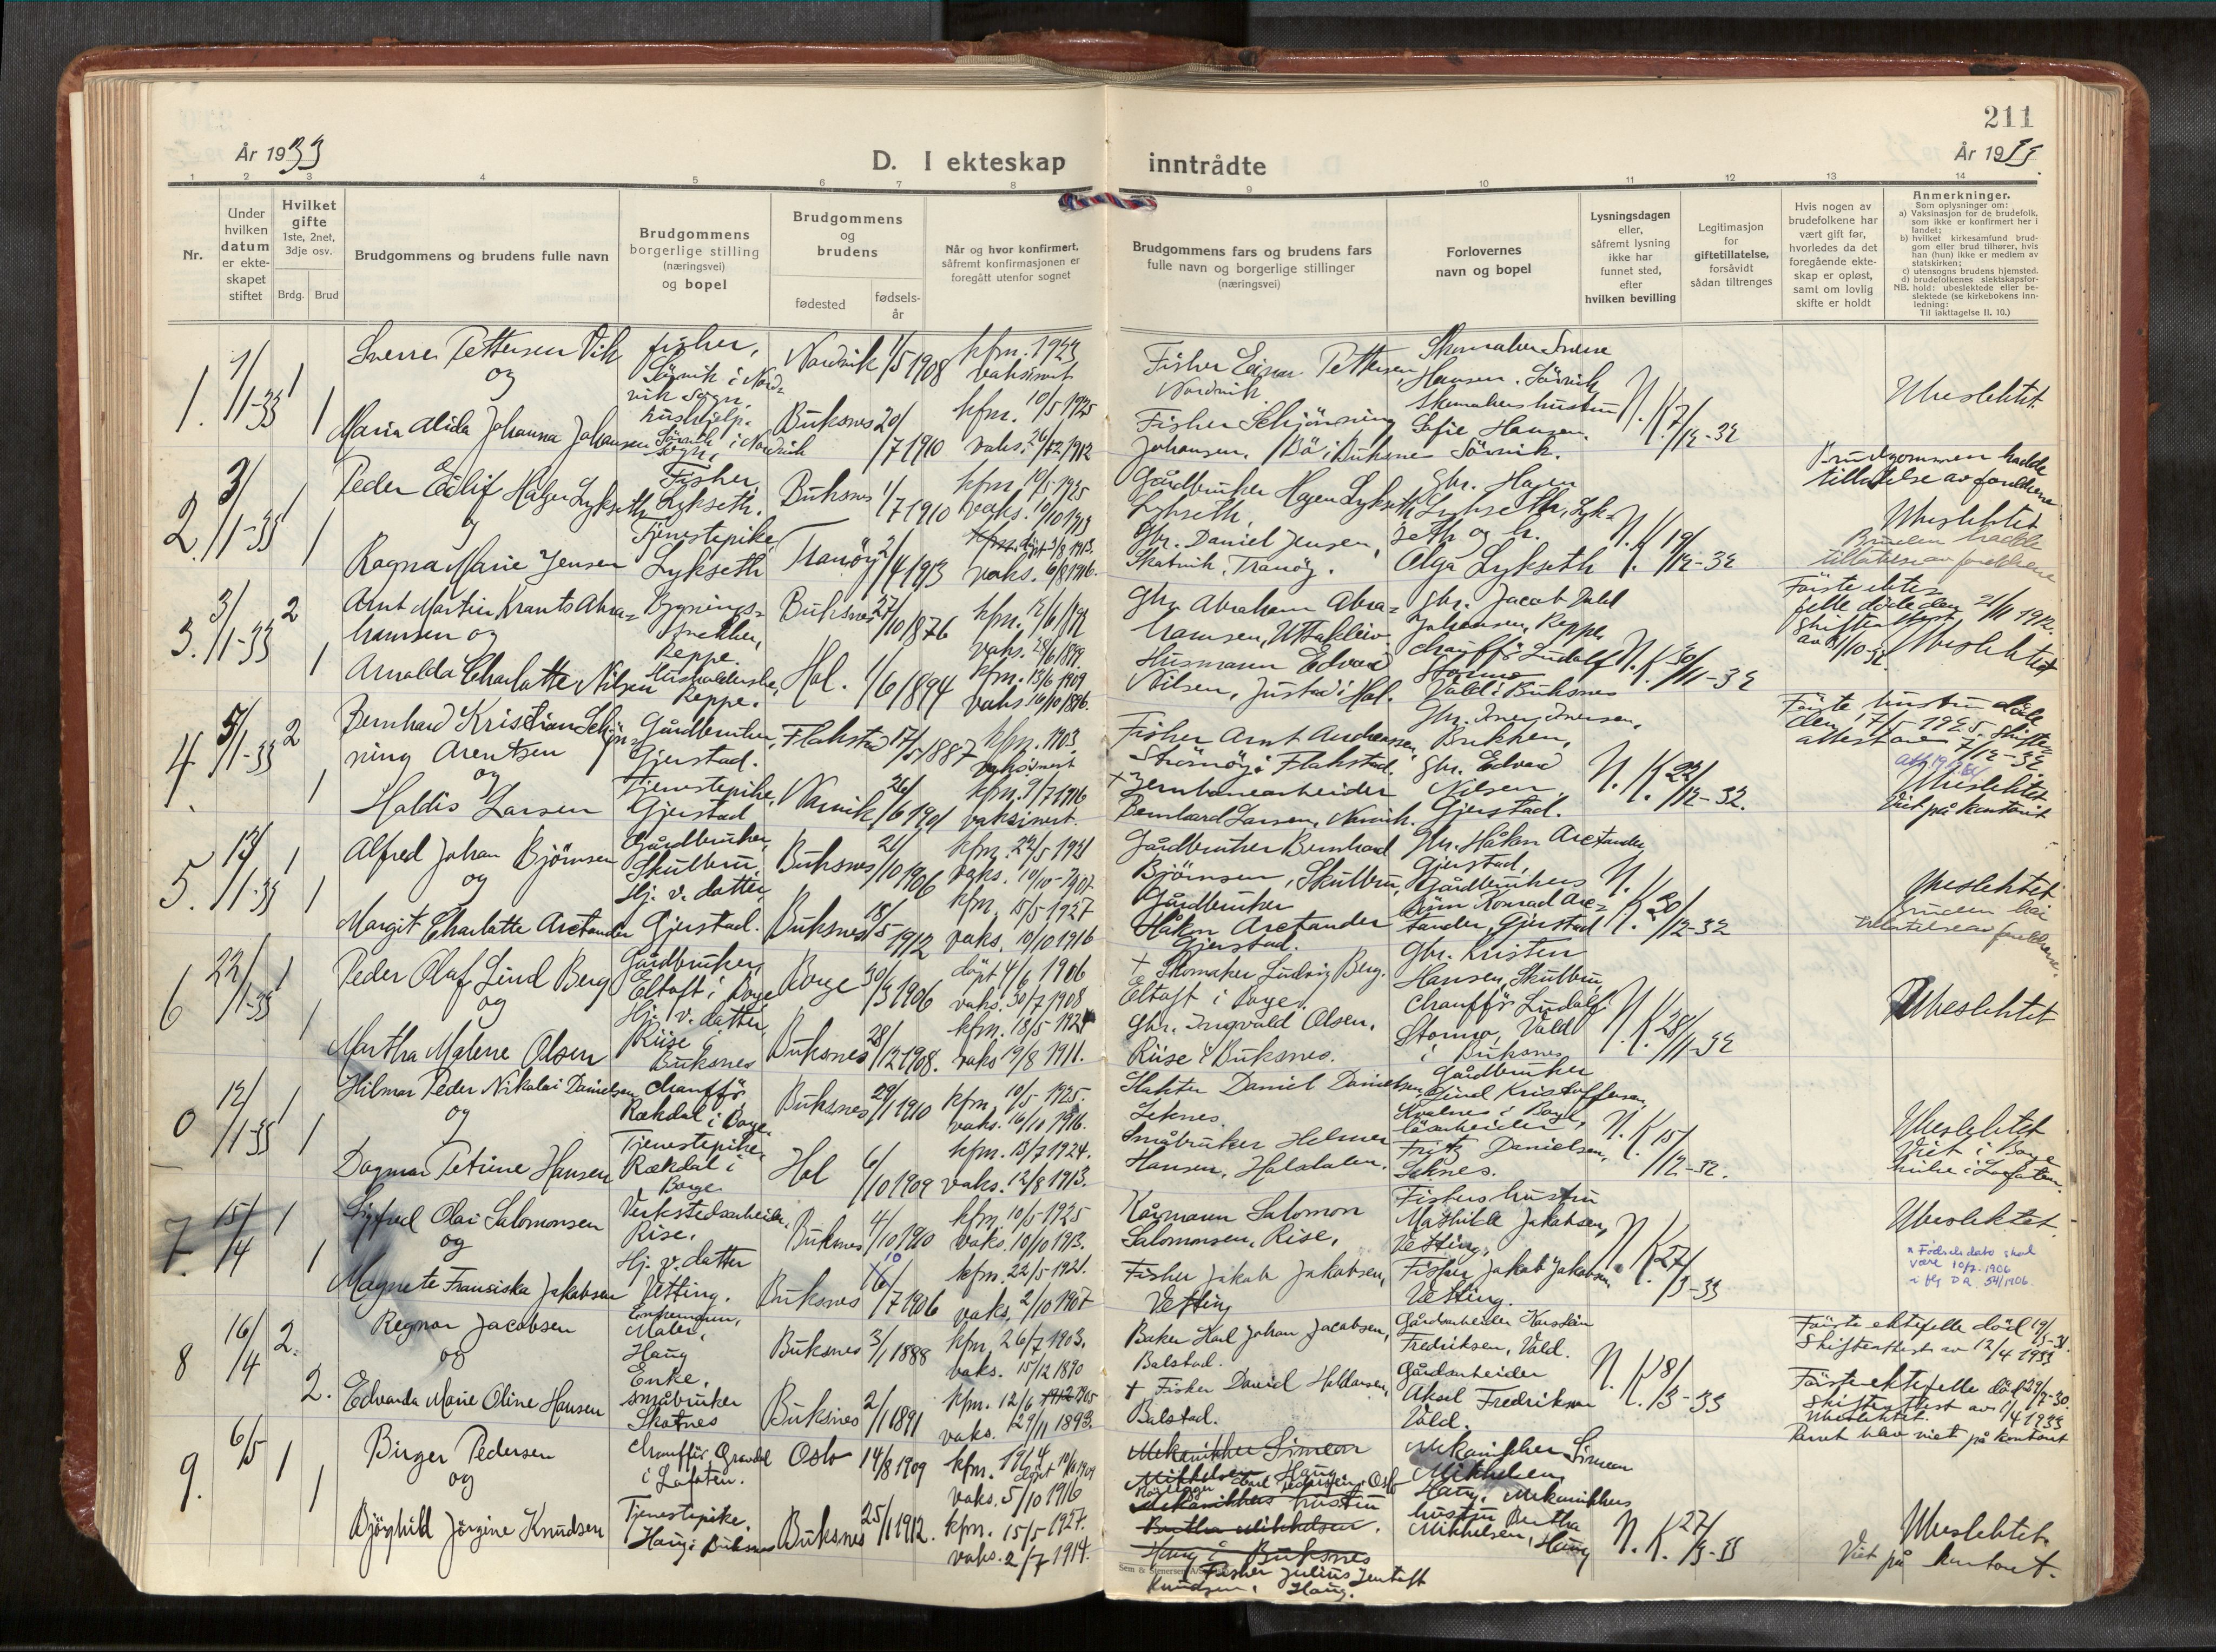 211
År 1933
D. I ekteskap inntrådte
År 1933
1 2 3 4 5 6 7 8 9 10 11 12 13 14
Nr.
Under hvilken datum er ekteskapet stiftet
Hvilket gifte
1ste, 2net, 3dje osv.
Brdg. Brud
Brudgommens og brudens fulle navn
Brudgommens borgerlige stilling (næringsvei) og bopel
Brudgommens og brudens
fødested
fødselsår
Når og hvor konfirmert, såfremt konfirmasjonen er foregått utenfor sognet
Brudgommens fars og brudens fars fulle navn og borgerlige stillinger (næringsvei)
Forlovernes navn og bopel
Lysningsdagen eller, såfremt lysning ikke har funnet sted, efter hvilken bevilling
Legitimasjon for giftetillatelse, forsåvidt sådan tiltrenges
Hvis nogen av brudefolkene har vært gift før, hvorledes da det foregående ekteskap er opløst, samt om lovlig skifte er holdt
Anmerkninger.
Som oplysninger om:
a) Vaksinasjon for de brudefolk, som ikke er konfirmert her i landet;
b) hvilket kirkesamfund brudgom eller brud tilhører, hvis han (hun) ikke er medlem av statskirken;
c) utensogns brudens hjemsted.
d) brudefolkenes slektskapsforhold: ubeslektede eller beslektede (se kirkebokens innledning:
NB.
Til iakttagelse II. 10.)
1. 1/1-33 1 Sverre Pettersen Vik fisher, Nordvik 1/5 1908 kfm. 1923 vaksinert
og
1 Maria Alida Johanna Johansen hushjelp. Buksnes 20/7 1910 kfm. 10/5 1925 vaks. 26/12 1912
Fisher Einar Pettersen, Nordvik
Skomaker Sverre Hansen, Sörvik
Fisher Schjönning Johansen, Bö i Buksnes
Skomakers hustru Sofie Hansen, Sörvik.
N. K. 7/12-32
Ubeslektet.
2. 3/1-33 1 Peder Eilif Holger Lykseth Fisher, Lykseth. Buksnes 1/7 1910 kfm. 10/5 1925 vaks. 10/10 1913
og
1 Ragna Marie Jensen Tjenestepike Lykseth Tranöy 2/4 1913 döpt 3/8 1913. vaks. 6/8 1916.
Gårdbruker Hagen Lykseth Lykseth.
Gbr. Hagen Lykseth, Lykseth og h. Olga Lykseth
Gbr. Daniel Jensen, Skatvik, Tranöy.
N. K. 19/12-32
Brudgommen hadde tillatelse av foreldrene
Ubeslektet
Bruden hadde tillatelse av foreldrene
3. 3/1-33 2 Arnt Martin Krants Abrahamsen og Bygningssnekker, Reppe. Buksnes 27/10 1876
1 Arnolda Charlotte Nilsen Husholderske, Reppe. Hol. 1/6 1894 kfm. 13/6 1909 vaks. 16/10 1896.
Gbr. Abraham Abrahamsen, Uttakleiv
Gbr. Jacob Vald Johansen, Reppe,
Husmann Edvard Nilsen, Justad i Hol.
Chaufför Ludolf Stormo Vald i Buksnes
N. K. 30/11-32
Förste ektefelle döde den 21/11 1912. Skifteattest av 31/10-32
Ubeslektet
4. 5/1-33 2 Bernhard Kristian Schjönning Arentsen Gårdbruker, Gjerstad. Flakstad 17/5 1887 kfm. 1903. vaksinert
og
1 Haldis Larsen Tjenestepike, Gjerstad Narvik 26/6 1901 kfm. 9/7 1916 vaksinert.
Fisher Arnt Andreassen, Strömöy i Flakstad.
Gbr. Iver Iversen, Brekken,
Jernbanearbeider Bernhard Larsen, Narvik.
Gbr. Edvard Nilsen Gjerstad.
N. K. 22/12-32.
Förste hustru döde den 17/5 1925. Skifteattest av 7/12-32
Ubeslektet
Viet på kontoret
5. 13/1-33 1 Alfred Johan Björnsen Gårdbruker, Skulbru. Buksnes 21/10 1906 kfm. 22/5 1921 vaks. 10/10-1907.
og
1 Margit Charlotte Arctander Hj. v. datter, Gjerstad. Buksnes 18/5 1912 kfm. 15/5 1927 vaks. 10/10 1916
Gårdbruker Bernhard Björnsen, Skulbru,
Gbr. Håkon Arctander, Gjerstad,
Gårdbruker Håkon Arctander Gjerstad.
Konrad Arctander, Gjerstad
N. K. 20/12-32
Ubeslektet.
6 22/1-33 1 Peder Olaf Lind Berg Gårdbruker, Eltoft i Borge Borge 30/3 1906 döpt 4/6 1906 vaks. 30/7 1908
og
1 Martha Malene Olsen Hj. v. datter, Riise i Buksnes Buksnes 28/12 1908. kfm. 18/5 1924 vaks 19/8 1911.
† Skomaker Ludvig Berg. Eltoft i Borge.
Gbr. Kristen Hansen, Skulbru
Gbr. Ingvald Olsen. Riise i Buksnes.
Chaufför Ludolf Stormo, Vald i Buksnes
N. K. 28/11-32
Ubeslektet
0 12/1-33 1 Hilmar Peder Nikolai Danielsen Chaufför Rækdal i Borge Buksnes 29/1 1910 kfm. 10/5 1925. vaks. 16/10 1916.
og
1 Dagmar Petrine Hansen Tjenestepike, Rækdal i Borge Hol 6/10 1909 kfm. 13/7 1924. vaks. 12/8 1913.
Slakter Daniel Danielsen, Leknes.
Gårdbruker Kristoffersen, Kvalnes i Borge,
Småbruker Helmer Hansen, Holsdalen.
Fritz Danielsen, Leknes.
N. K. 15/12-32.
Ubeslektet
Viet i Borge kirke i Lofoten.
7. 15/4 1 Sigfred Olai Salomonsen Verkstedsarbeider, Rise. Buksnes 4/10 1910 kfm. 10/5 1925 vaks. 10/10 1913.
og
1 Magnete Fransiska Jakobsen Hj. v. datter Vetting. Buksnes 10/7 1906 kfm. 22/5 1921. vaks. 2/10 1907
Kårmann Salomon Salomonsen, Rise,
Fiskers hustru Mathilde Jakobsen, Vetting,
Fisher Jakob Jakobsen, Vetting
Fisher Jakob Jakobsen Vetting.
N. K. 27/3-33
Ubeslektet.
x Fødselsdato skal være 10/7. 1906 i flg D.A. 54/1906.
8 16/4 2. Regnor Jacobsen Enkemann, Maler, Haug Buksnes 3/1 1888 kfm. 26/7 1903. vaks. 15/12 1890
og
2. Edvarda Marie Oline Hansen Enke, småbruker Skotnes Buksnes 2/1 1891 kfm. 12/6 1905 vaks. 29/11 1893.
Baker Karl Johan Jacobsen, Balstad.
Gårdsarbeider Karstein Fredriksen, Vald.
† Fisher David Haldorsen, Balstad.
Gårdsarbeider Aksel Fredriksen Vald.
N. K. 8/3-33
Förste ektefelle död 19/5-31. Skifteattest av 12/4 1933
Förste ektefelle död 29/7-30. Skifteattest av 1/4 1933
Ubeslektet.
Paret blev viet på kontoret
9. 6/5 1 Birger Pedersen Chaufför, Gravdal i Lofoten. Oslo 14/8 1909 kfm. 1924 vaks. 5/10 1916
og
1 Björghild Jörgine Knudsen Tjenestepike. Haug i Buksnes Buksnes 25/1 1912. kfm. 15/5 1927. vaks. 2/7 1914.
Mekanikker Simeon Mikkelsen, Haug.
Mekanikkers hustru Bertha Mikkelsen. Haug i Buksnes
Fisher Julius Jentoft Knudsen, Haug.
Mekanikker Simeon Mikkelsen Haug. Mekanikkers hustru Bertha Mikkelsen, Haug
N. K. 27/3-33
Ubeslektet.
Viet på kontoret.
Sem & Stenersen A/S